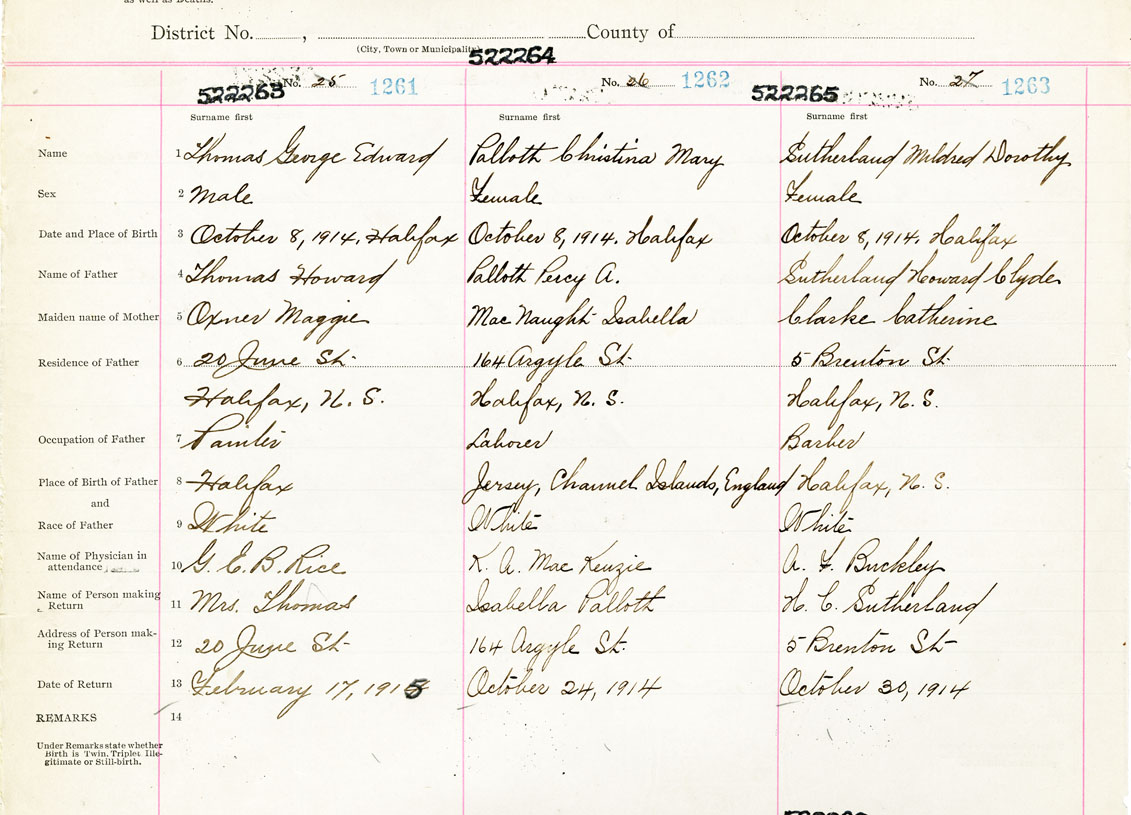 as well as Deaths.
District No. , County of
(City, Town or Municipality)
522264
522263 No. 25 1261 No. 26 1262 522265 No. 27 1263
Surname first Surname first Surname first
Name 1 Thomas George Edward Palloth Christina Mary Sutherland Mildred Dorothy
Sex 2 Male Female Female
Date and Place of Birth 3 October 8, 1914, Halifax October 8, 1914, Halifax October 8, 1914, Halifax
Name of Father 4 Thomas Howard Palloth Percy A. Sutherland Howard Clyde
Maiden name of Mother 5 Oxner Maggie Mac Naught Isabella Clarke Catherine
Residence of Father 6 20 June St. 164 Argyle St. 5 Brenton St.
Halifax, N. S. Halifax, N. S. Halifax, N. S.
Occupation of Father 7 Painter Laborer Barber
Place of Birth of Father 8 Halifax Jersey, Channel Islands, England Halifax, N. S.
and
Race of Father 9 White White White
Name of Physician in
attendance 10 G. E. B. Rice K. A. Mac Kenzie A. F. Buckley
Name of Person making
Return 11 Mrs. Thomas Isabella Palloth H. C. Sutherland
Address of Person mak-
ing Return 12 20 June St. 164 Argyle St. 5 Brenton St.
Date of Return 13 February 17, 1915 October 24, 1914 October 30, 1914
REMARKS 14
Under Remarks state whether
Birth is Twin, Triplet, Ille-
gitimate or Still-birth.